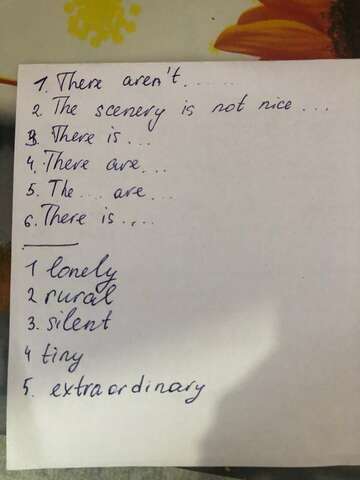 1. There aren't.......
2. The scenery is not nice ...
3. There is ...
4. There are...
5. The ... are...
6. There is ....
1 lonely
2 rural
3. silent
4 tiny
5. extraordinary